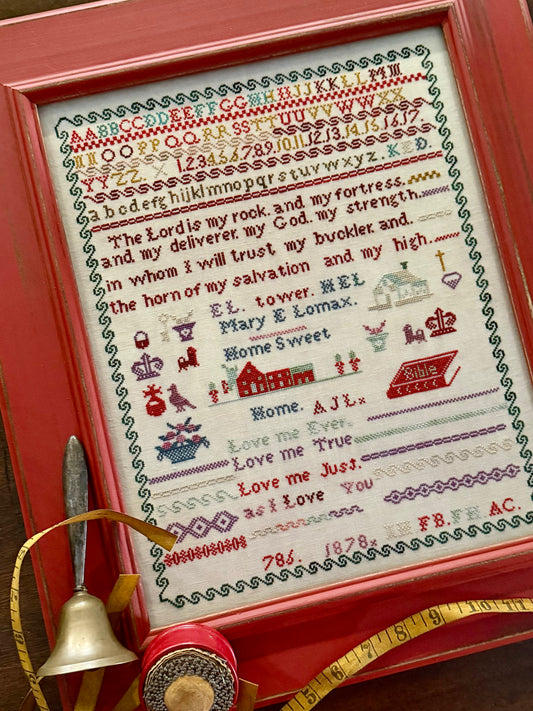 AABBCCDDEEFFGGHHIIJJKKLLMM
NNOOPPQQRRSSTTUUVVWWXX
YYZZ. X 1.2.3.4.5.6.7.8.9.10.11.12.13.14.15.16.17.
abcdefghijklmnopqrstuvwxyz. KED.
The Lord is my rock. and my fortress.
and. my deliverer. my God. my strength.
in whom I will trust my buckler. and.
the horn of my salvation and my high.
EL. tower. MEL
Mary E Lomax.
Home Sweet
Bible
Home. AJLx
Love me Ever.
Love me True
Love me Just.
as I Love You
FB. FH. AC.
786. 1878x
1 2 3 4 5 6 7 8 9 10 11